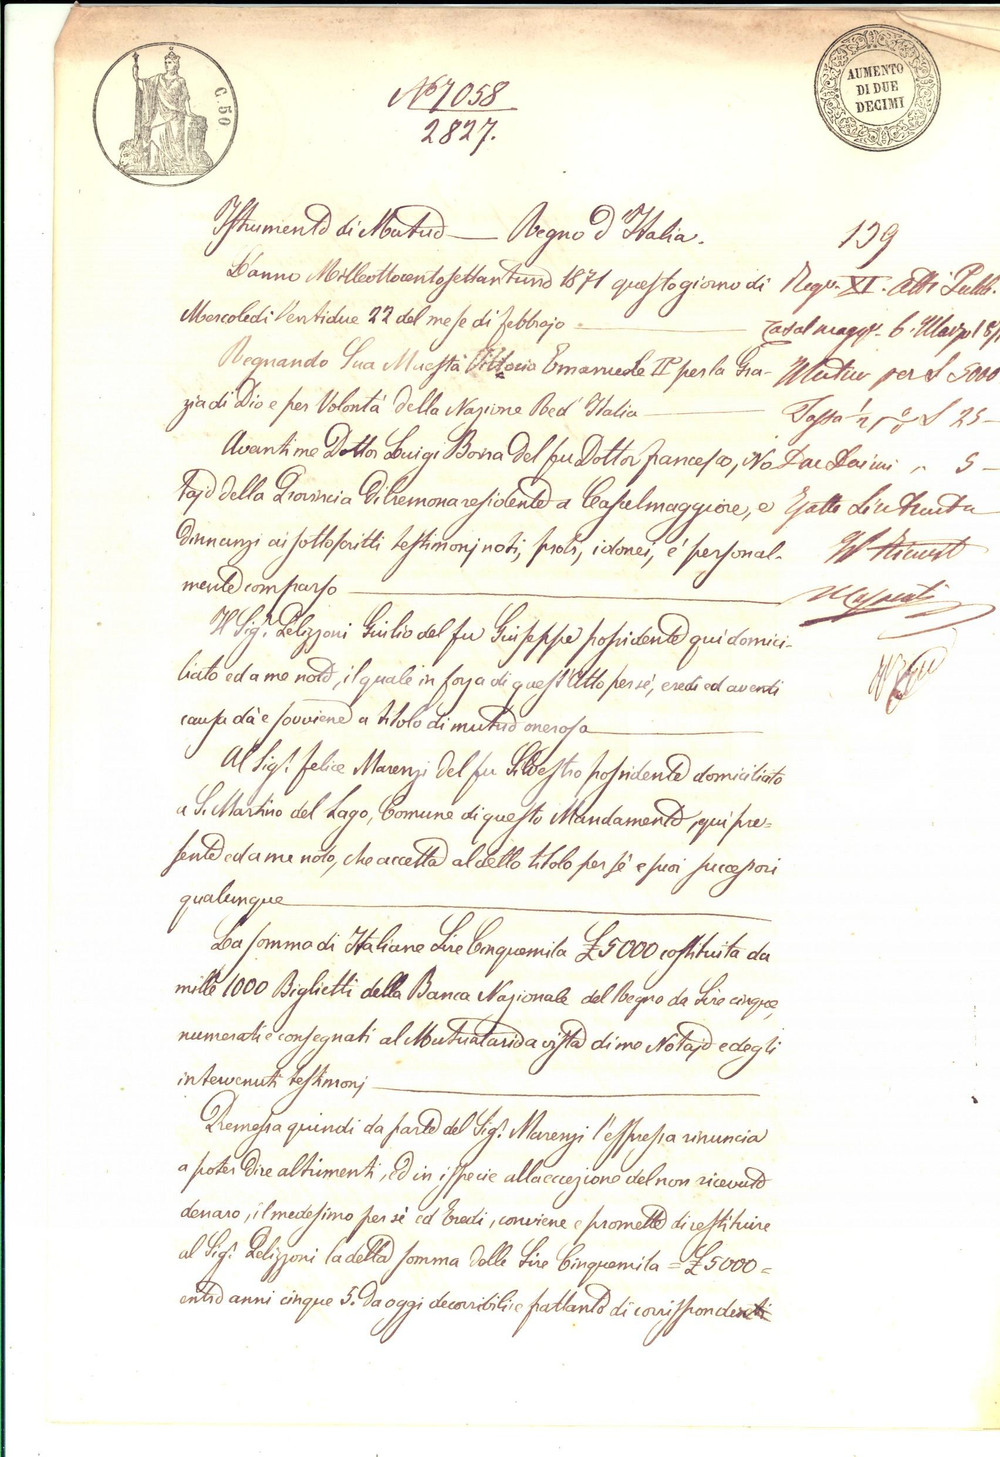 C. 50
AUMENTO
DI DUE
DECIMI
N° 7058
2827.
Istrumento di Mutuo — Regno d'Italia.
L'anno Milleottocentosettantuno 1871 questo giorno di
Mercoledì Ventidue 22 del mese di febbrajo
Regnando Sua Maestà Vittorio Emanuele II° per la Gra-
zia di Dio e per Volontà della Nazione Re d'Italia
Avanti me Dottor Luigi Borsa del fu Dottor francesco, No
tajo della Provincia di Cremona residente a Casalmaggiore, e
dinnanzi ai sottoscritti testimonj noti, probi, idonei, è personal-
mente comparso
Il Sig.r Pelizzoni Giulio del fu Giuseppe possidente qui domici-
liato ed a me noto, il quale in forza di quest'Atto per sé, eredi ed aventi
causa dà e sovviene a titolo di mutuo oneroso
Al Sig.r felice Marenzi del fu Silvestro possidente domiciliato
a S. Martino del Lago, Comune di questo Mandamento, qui pre-
sente ed a me noto, che accetta al detto titolo per sé e suoi successori
qualunque
La somma di Italiane Lire Cinquemila £ 5000 costituita da
mille 1000 Biglietti della Banca Nazionale del Regno da Lire cinque,
numerati e consegnati al Mutuatario a vista di me Notajo e degli
intervenuti testimonj
Premessa quindi da parte del Sig.r Marenzi l'espressa rinuncia
a poter dire altrimenti, ed in ispecie all'accezione del non ricevuto
denaro, il medesimo per sé ed Eredi, conviene e promette di restituire
al Sig.r Pelizzoni la detta somma delle Lire Cinquemila = £ 5000 =
entro anni cinque 5. da oggi decorribili e frattanto di corrispondenti
139
Reg.° XI. Atti Pubb.
Casalmagg.e 6. Marzo 187
Mutuo per £ 5000
Tassa £ 25 —
Due Decimi „ 5 —
Esatte Lire trenta
Il Ricevit